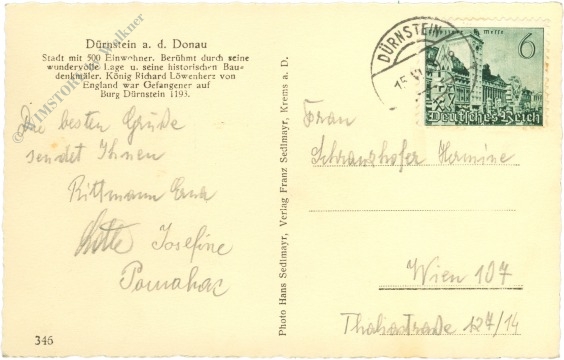 Dürnstein a. d. Donau
Stadt mit 500 Einwohner. Berühmt durch seine
wundervolle Lage u. seine historischen Bau-
denkmäler. König Richard Löwenherz von
England war Gefangener auf
Burg Dürnstein 1193.
Die besten Grüße
sendet Ihnen
Rittmann Erna
Josefine
Pomahac
346
Photo Hans Sedlmayr, Verlag Franz Sedlmayr, Krems a. D.
DÜRNSTEIN
15.VI
Messe
6
Deutsches Reich
Frau
Schranzhofer Hermine
Wien 107
Thaliastraße 127/14